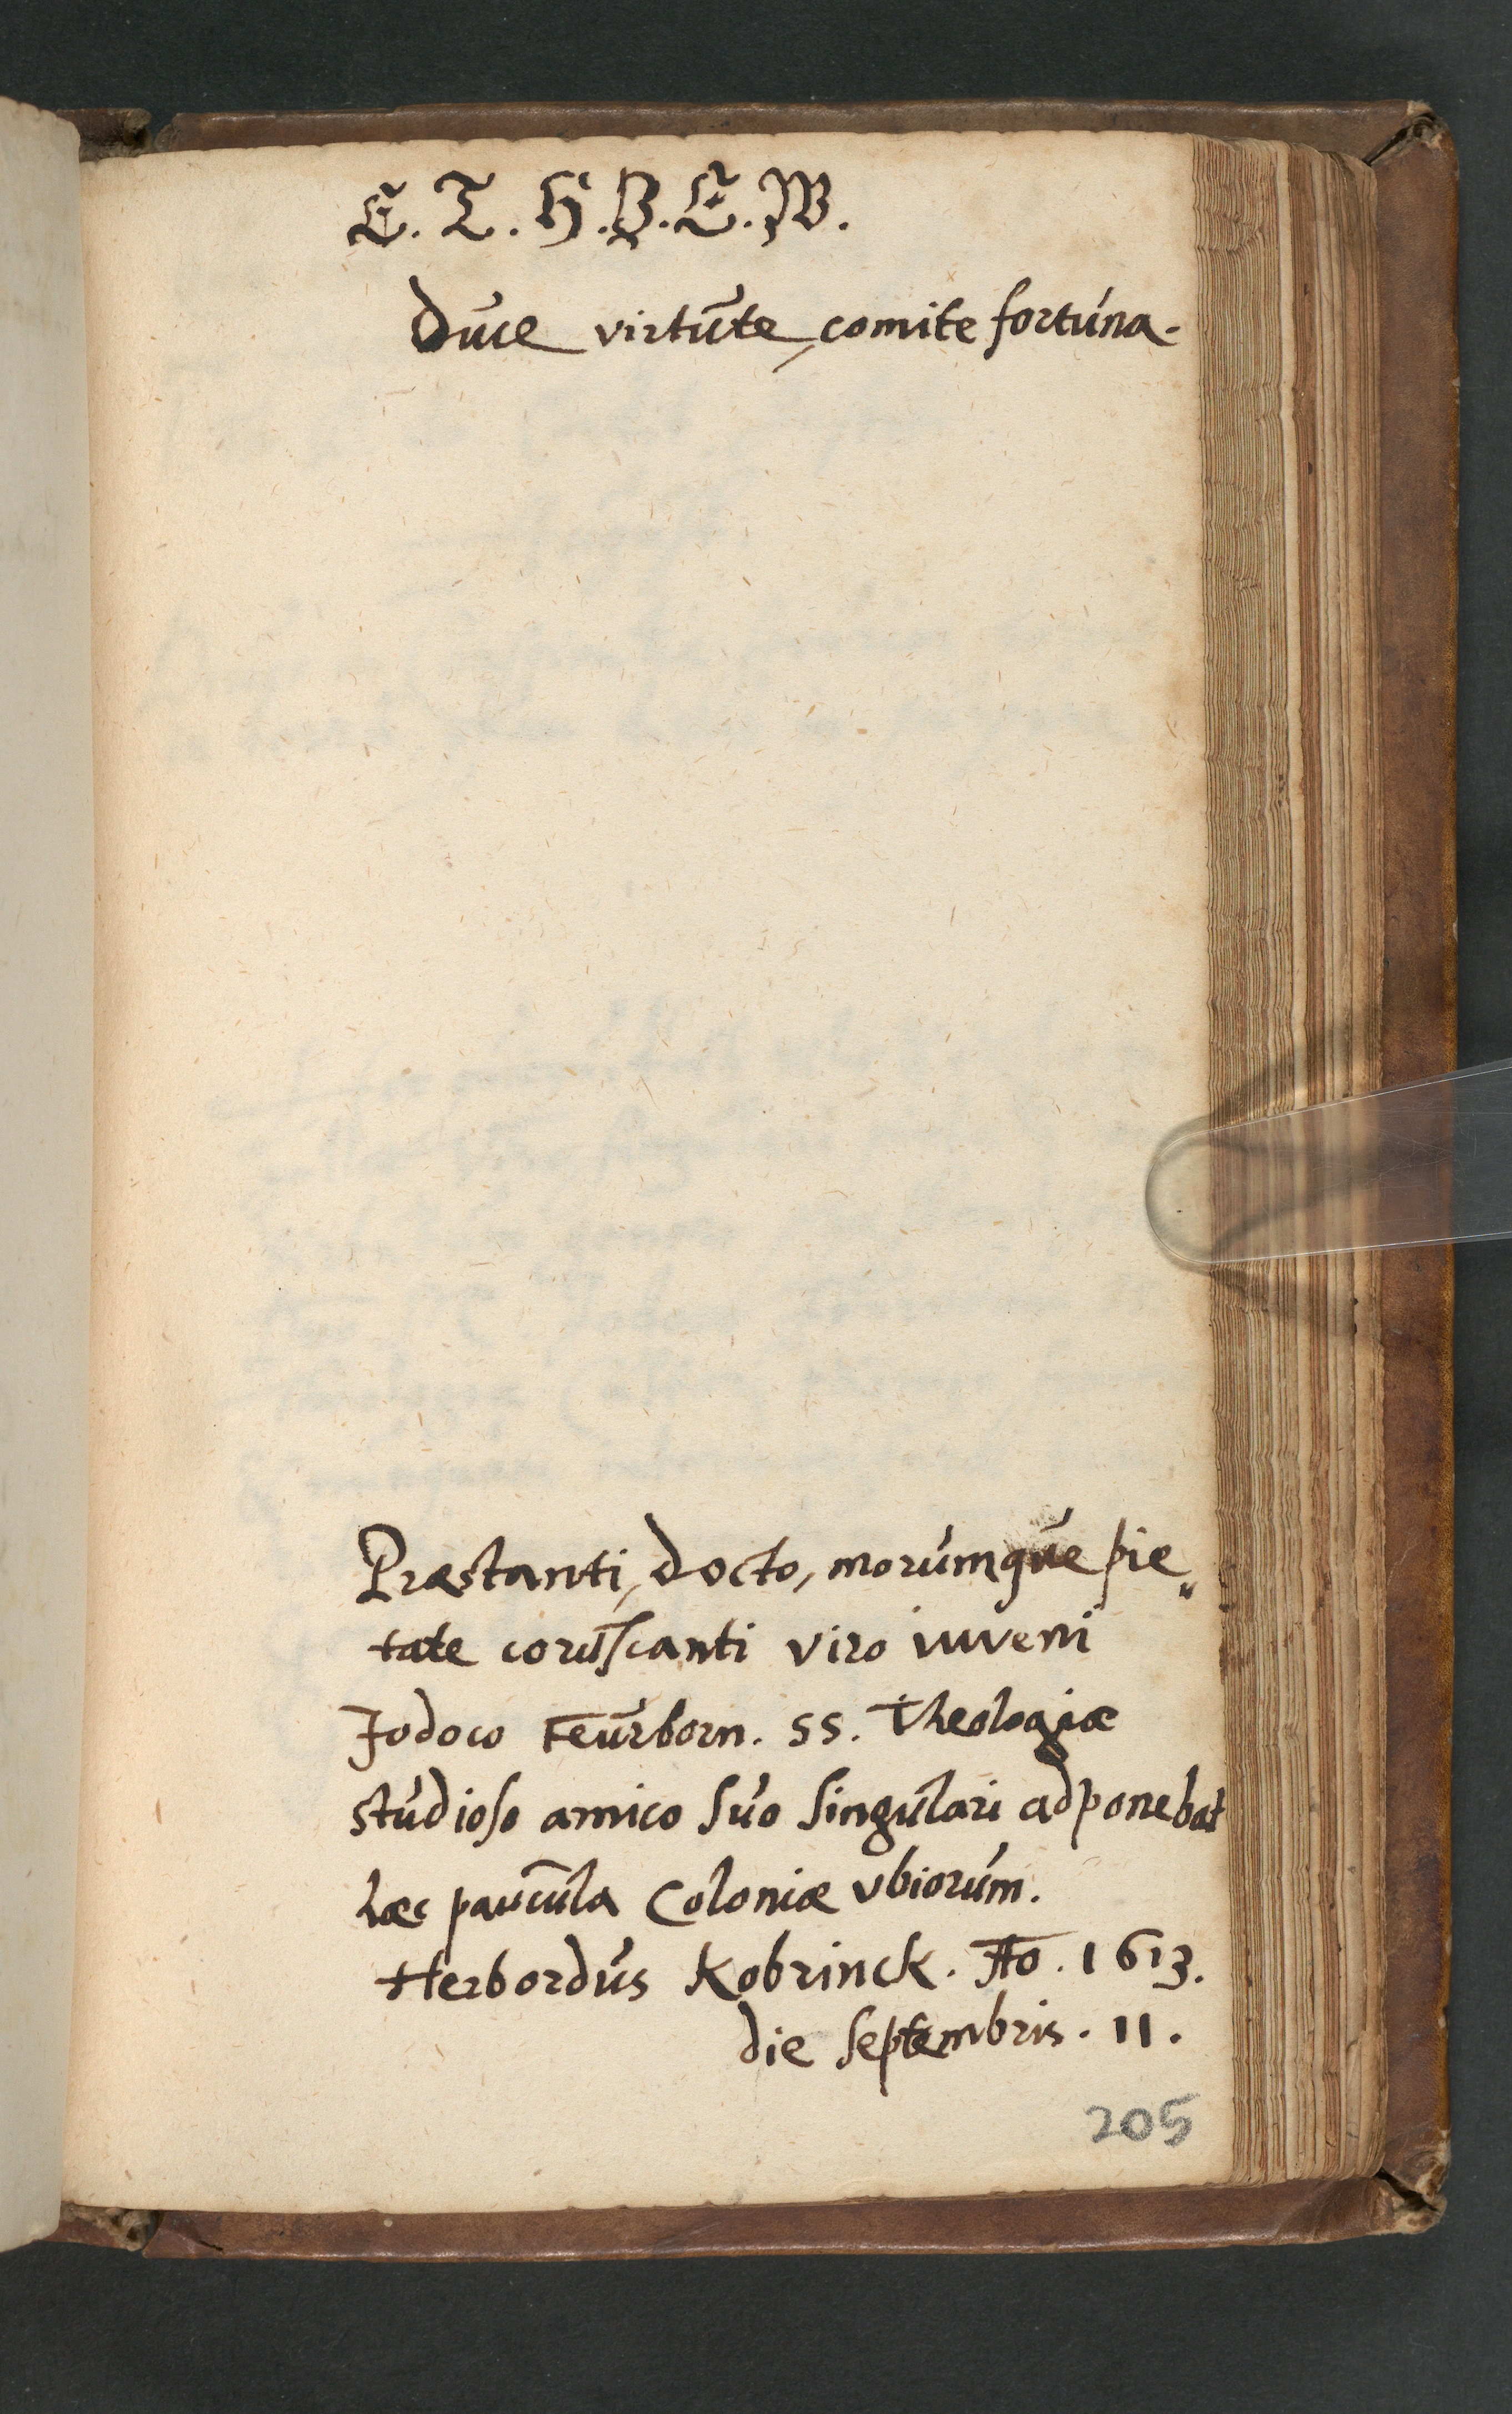 E. T. H. B. E. W.
Duce virtute, comite fortuna.
Præstanti, docto, morumque pie„
tate coruscanti viro iuveni
Jodoco Feurborn. SS. Theologiæ
studioso amico suo singulari adponebat
hæc paucula Coloniæ Ubiorum.
Herbordus Kobrinck. Ao. 1613.
die Septembris. 11.
205